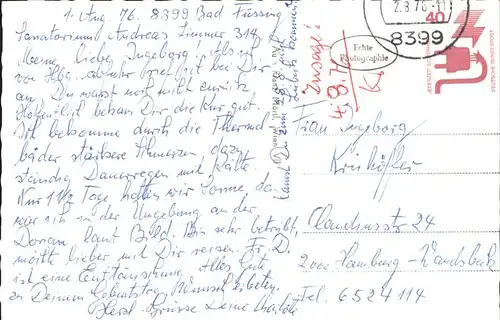 1. Aug. 76. 8399 Bad Füssing
Sanatorium Andreas Zimmer 314
Meine liebe Ingeborg! Als ich
von Hbg. abfuhr rief ich bei Dir
an. Du warst noch nicht zurück
Hoffentlich bekam Dir die Kur gut.
Ich bekomme durch die Thermal
bäder stärkere Schmerzen dazu
ständig Dauerregen mit Kälte.
Nur 1 1/2 Tage hatten wir Sonne, da
war ich in der Umgebung an der
Donau laut Bild. Bin sehr betrübt,
möchte lieber mit Dir reisen. Fr. D.
ist eine Enttäuschung. Alles Gute
zu Deinem Geburtstag
Herzl. Grüsse Deine
kannst Du zum kommen?
Zusage!
4.8.76
Echte
Photographie
2.8.76-11
8399
40
DEUTSCHE BUNDESPOST
Frau Ingeborg
Claudiusstr 24
2000 Hamburg-Wandsbek
Tel. 6524114